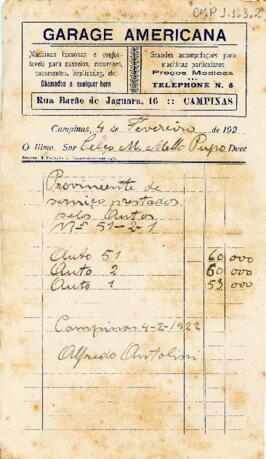 CMP 1.1.3.2
GARAGE AMERICANA
Machinas formosas e confor-
taveis para passeios, excursões,
casamentos, baptisados, etc.
Chamados a qualquer hora
Grandes accomodações para
machinas particulares
Preços Modicos
TELEPHONE N. 5
Rua Barão de Jaguara, 16 :: CAMPINAS
Campinas, 4 de Fevereiro de 192
O Illmo. Snr Celso M. Mello Pupo Deve
Proviniente de
serviço prestados
pelos Autos
Nº 51-2-1
Auto 51 60,000
Auto 2 60,000
Auto 1 55,000
Campinas 4-2-1922
Alfredo Antolini